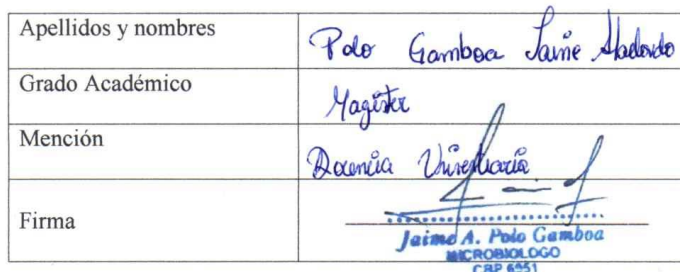 Apellidos y nombres
Polo Gamboa Jaime Abelardo
Grado Académico
Magister
Mención
Docencia Universitaria
Firma
Jaime A. Polo Gamboa
MICROBIOLOGO
CBP 6951